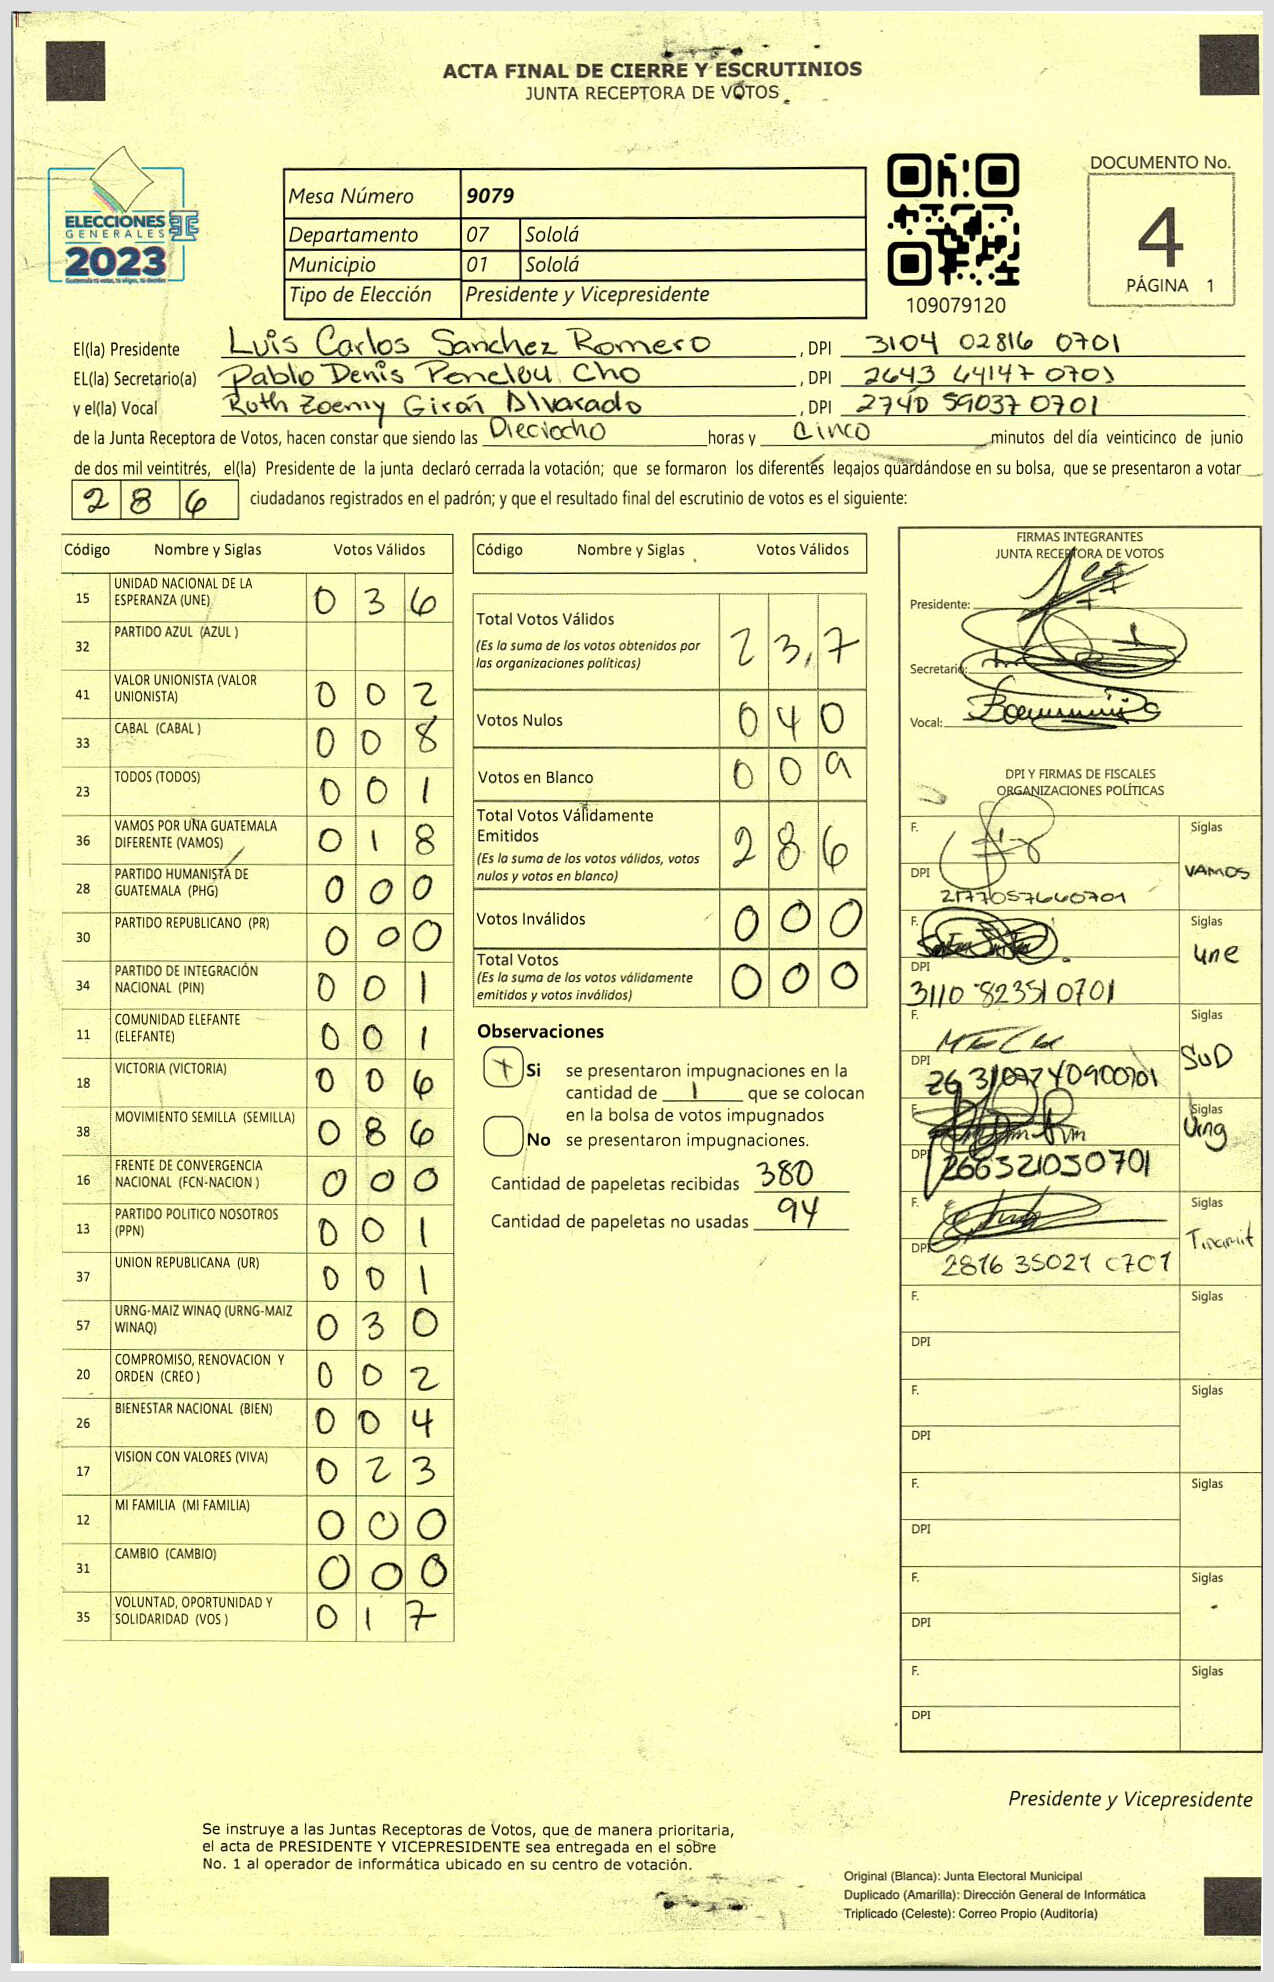 ACTA FINAL DE CIERRE Y ESCRUTINIOS
JUNTA RECEPTORA DE VOTOS
ELECCIONES
GENERALES
2023
Mesa Número 9079
Departamento 07 Sololá
Municipio 01 Sololá
Tipo de Elección Presidente y Vicepresidente
109079120
DOCUMENTO No.
4
PÁGINA 1
El(la) Presidente Luis Carlos Sanchez Romero , DPI 3104 02816 0701
EL(la) Secretario(a) Pablo Denis Cho , DPI 2643 64147 0701
y el(la) Vocal Ruth Zoemy Girón Alvarado , DPI 2740 59037 0701
de la Junta Receptora de Votos, hacen constar que siendo las Dieciocho horas y Cinco minutos del día veinticinco de junio
de dos mil veintitrés, el(la) Presidente de la junta declaró cerrada la votación; que se formaron los diferentes legajos guardándose en su bolsa, que se presentaron a votar
286 ciudadanos registrados en el padrón; y que el resultado final del escrutinio de votos es el siguiente:
Código Nombre y Siglas Votos Válidos
15 UNIDAD NACIONAL DE LA ESPERANZA (UNE) 0 3 6
32 PARTIDO AZUL (AZUL )
41 VALOR UNIONISTA (VALOR UNIONISTA) 0 0 2
33 CABAL (CABAL ) 0 0 8
23 TODOS (TODOS) 0 0 1
36 VAMOS POR UNA GUATEMALA DIFERENTE (VAMOS) 0 1 8
28 PARTIDO HUMANISTA DE GUATEMALA (PHG) 0 0 0
30 PARTIDO REPUBLICANO (PR) 0 0 0
34 PARTIDO DE INTEGRACIÓN NACIONAL (PIN) 0 0 1
11 COMUNIDAD ELEFANTE (ELEFANTE) 0 0 1
18 VICTORIA (VICTORIA) 0 0 6
38 MOVIMIENTO SEMILLA (SEMILLA) 0 8 6
16 FRENTE DE CONVERGENCIA NACIONAL (FCN-NACION ) 0 0 0
13 PARTIDO POLITICO NOSOTROS (PPN) 0 0 1
37 UNION REPUBLICANA (UR) 0 0 1
57 URNG-MAIZ WINAQ (URNG-MAIZ WINAQ) 0 3 0
20 COMPROMISO, RENOVACION Y ORDEN (CREO ) 0 0 2
26 BIENESTAR NACIONAL (BIEN) 0 0 4
17 VISION CON VALORES (VIVA) 0 2 3
12 MI FAMILIA (MI FAMILIA) 0 0 0
31 CAMBIO (CAMBIO) 0 0 0
35 VOLUNTAD, OPORTUNIDAD Y SOLIDARIDAD (VOS ) 0 1 7
Código Nombre y Siglas Votos Válidos
Total Votos Válidos 2 3 7
(Es la suma de los votos obtenidos por
las organizaciones políticas)
Votos Nulos 0 4 0
Votos en Blanco 0 0 9
Total Votos Válidamente
Emitidos 2 8 6
(Es la suma de los votos válidos, votos
nulos y votos en blanco)
Votos Inválidos 0 0 0
Total Votos 0 0 0
(Es la suma de los votos válidamente
emitidos y votos inválidos)
Observaciones
Si se presentaron impugnaciones en la
cantidad de 1 que se colocan
en la bolsa de votos impugnados
No se presentaron impugnaciones.
Cantidad de papeletas recibidas 380
Cantidad de papeletas no usadas 94
FIRMAS INTEGRANTES
JUNTA RECEPTORA DE VOTOS
Presidente:
Secretario:
Vocal:
DPI Y FIRMAS DE FISCALES
ORGANIZACIONES POLÍTICAS
F. Siglas
DPI VAMOS
2177057660701
F. Siglas
Une
DPI
3110 82351 0701
F. Siglas
DPI SUD
F. Siglas
Urng
DPI
266321030701
F. Siglas
DPI
2816 35021 0701
F. Siglas
DPI
F. Siglas
DPI
F. Siglas
DPI
F. Siglas
DPI
F. Siglas
DPI
Presidente y Vicepresidente
Se instruye a las Juntas Receptoras de Votos, que de manera prioritaria,
el acta de PRESIDENTE Y VICEPRESIDENTE sea entregada en el sobre
No. 1 al operador de informática ubicado en su centro de votación.
Original (Blanca): Junta Electoral Municipal
Duplicado (Amarilla): Dirección General de Informática
Triplicado (Celeste): Correo Propio (Auditoría)